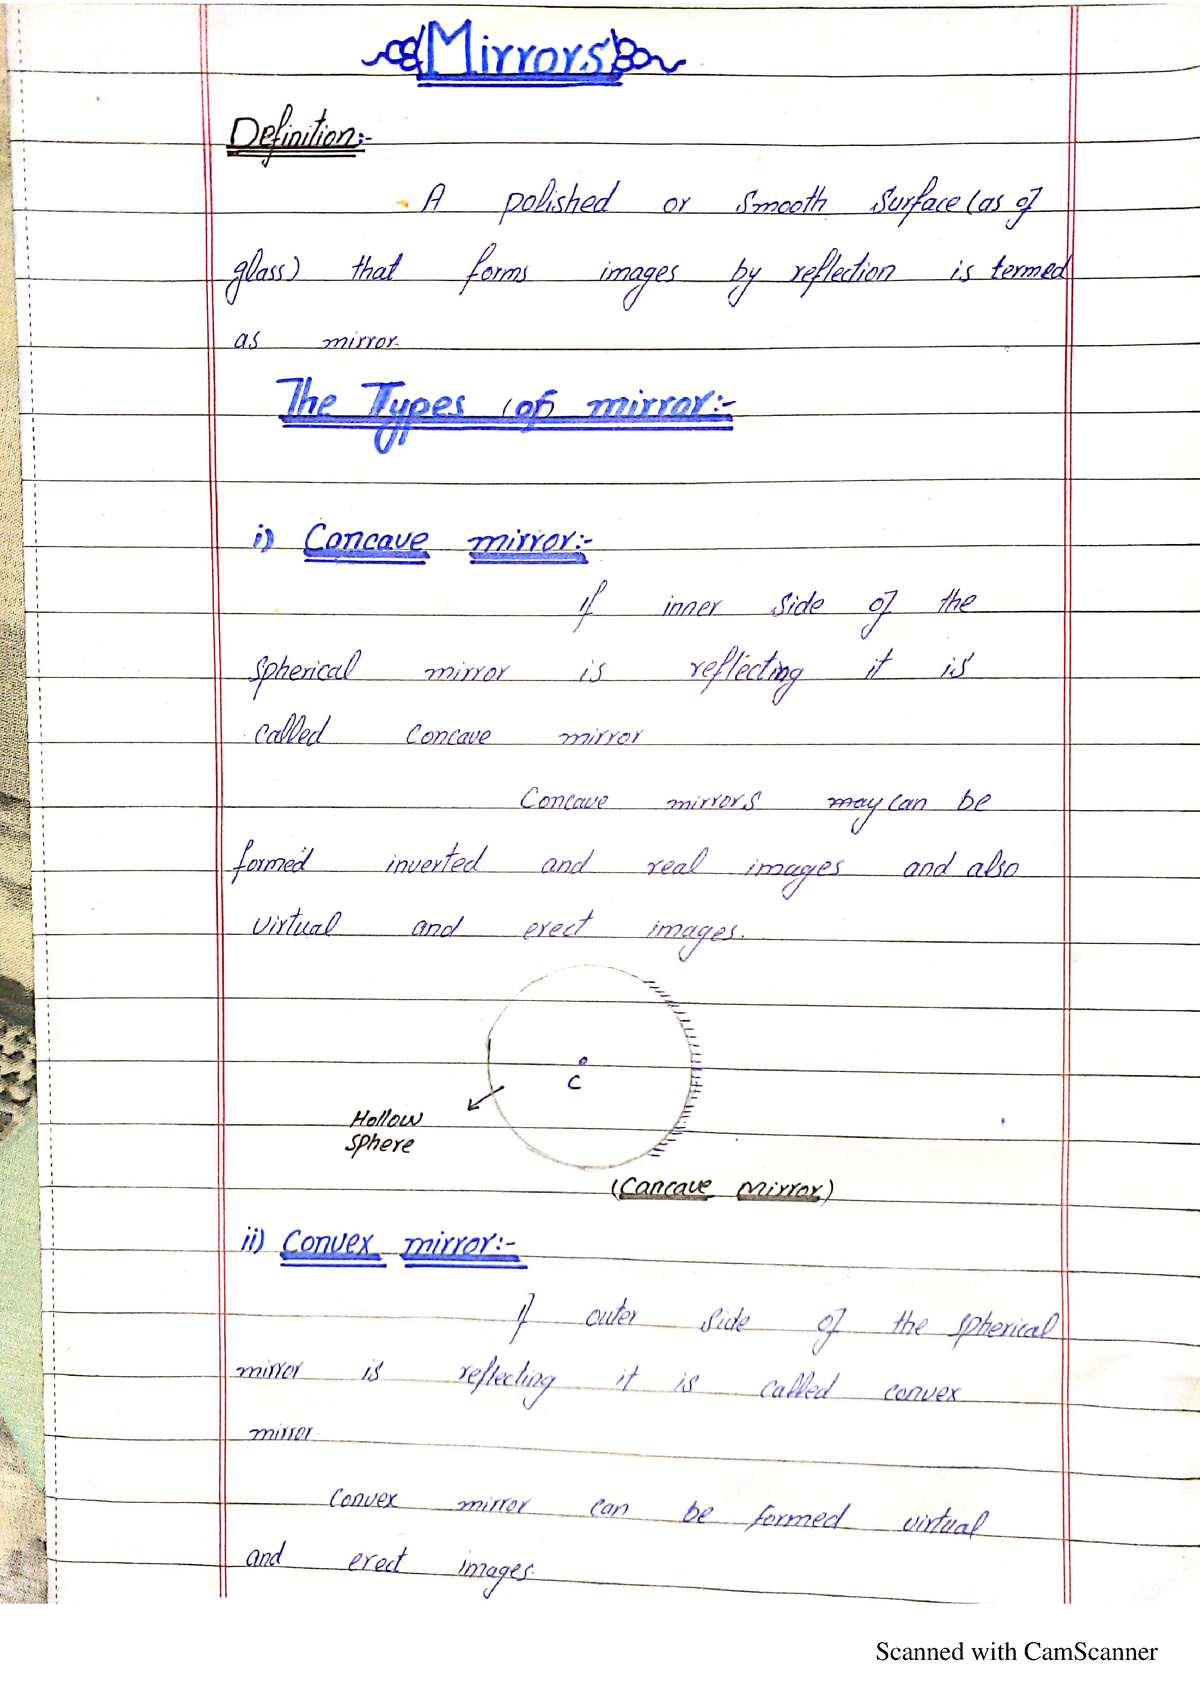 Mirrors
Definition:-
A polished or smooth surface (as of
glass) that forms images by reflection is termed
as mirror.
The Types (of) mirror:-
i) Concave mirror:-
If inner side of the
spherical mirror is reflecting it is
called concave mirror
Concave mirrors may can be
formed inverted and real images and also
virtual and erect images.
C
Hollow
sphere
(Cancave mirror)
ii) Convex mirror:-
If outer side of the spherical
mirror is reflecting it is called convex
mirror.
Convex mirror can be formed virtual
and erect images.
Scanned with CamScanner